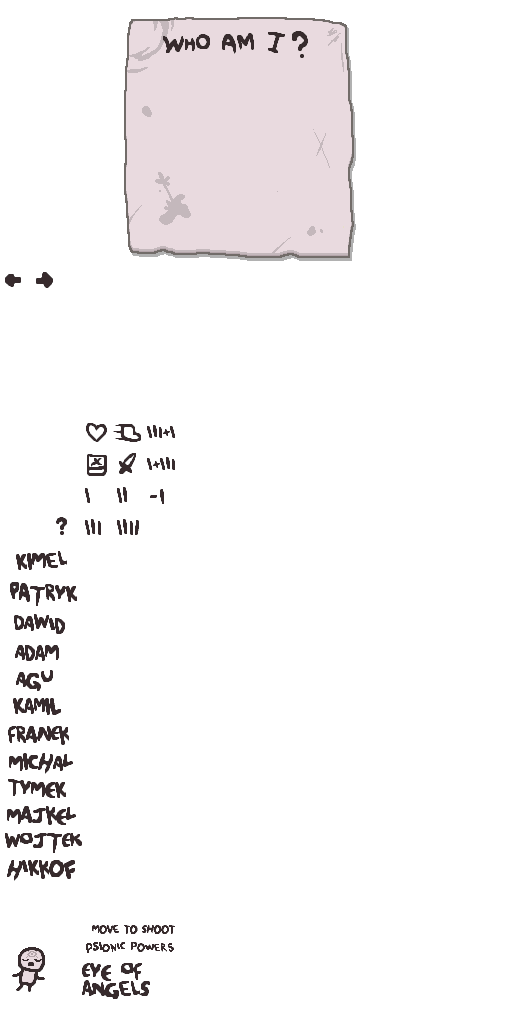 WHO AM I?
III+I
I+III
I II -I
? III IIII
KIMEL
PATRYK
DAWID
ADAM
AGU
KAMIL
FRANEK
MICHAL
TYMEK
MAJKEL
WOJTEK
HIKKOF
MOVE TO SHOOT
PSIONIC POWERS
EYE OF
ANGELS